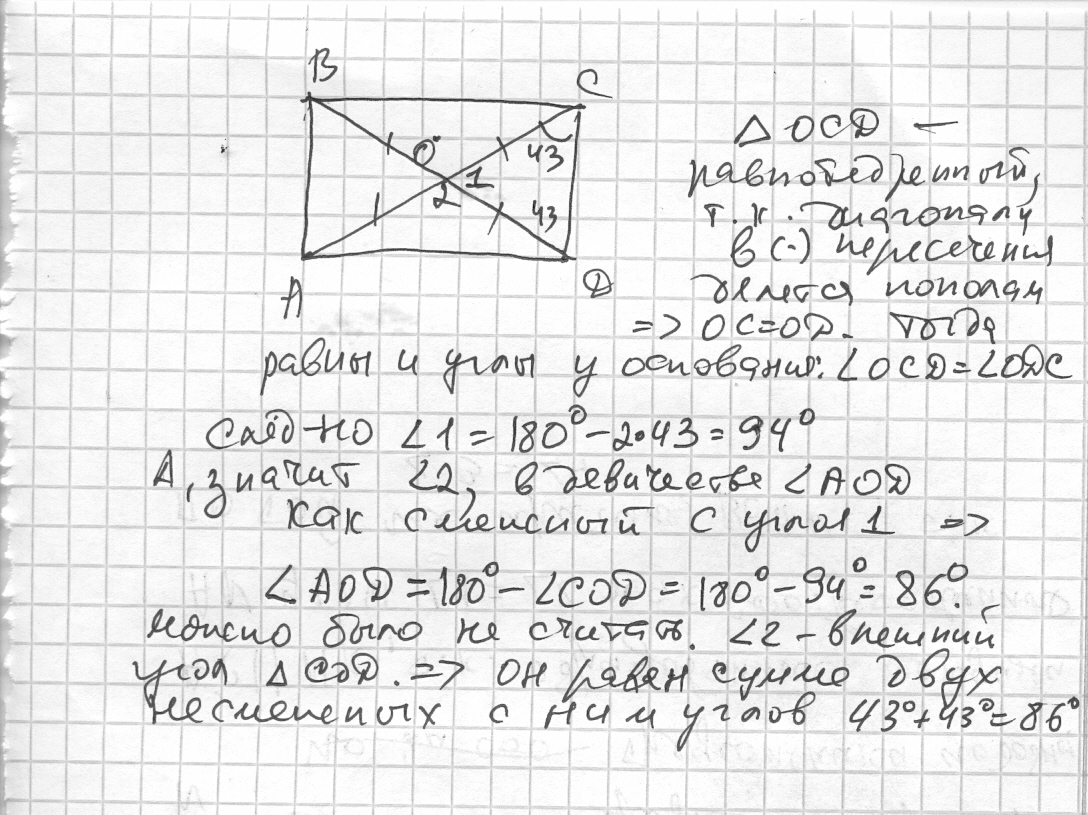 B
C
O
1
2
43
43
A
D
△ OCD —
равнобедренный,
т.к. диагонали
в (·) пересечения
делятся пополам
=> OC=OD. Тогда
равны и углы у основания: ∠OCD=∠ODC
След-но ∠1=180°-2•43=94°
А, значит ∠2, в девичестве ∠AOD
как смежный с углом 1 =>
∠AOD=180°-∠COD=180°-94°=86°.
можно было не считать. ∠2-внешний
угол △COD. => он равен сумме двух
несмежных с ним углов 43°+43°=86°